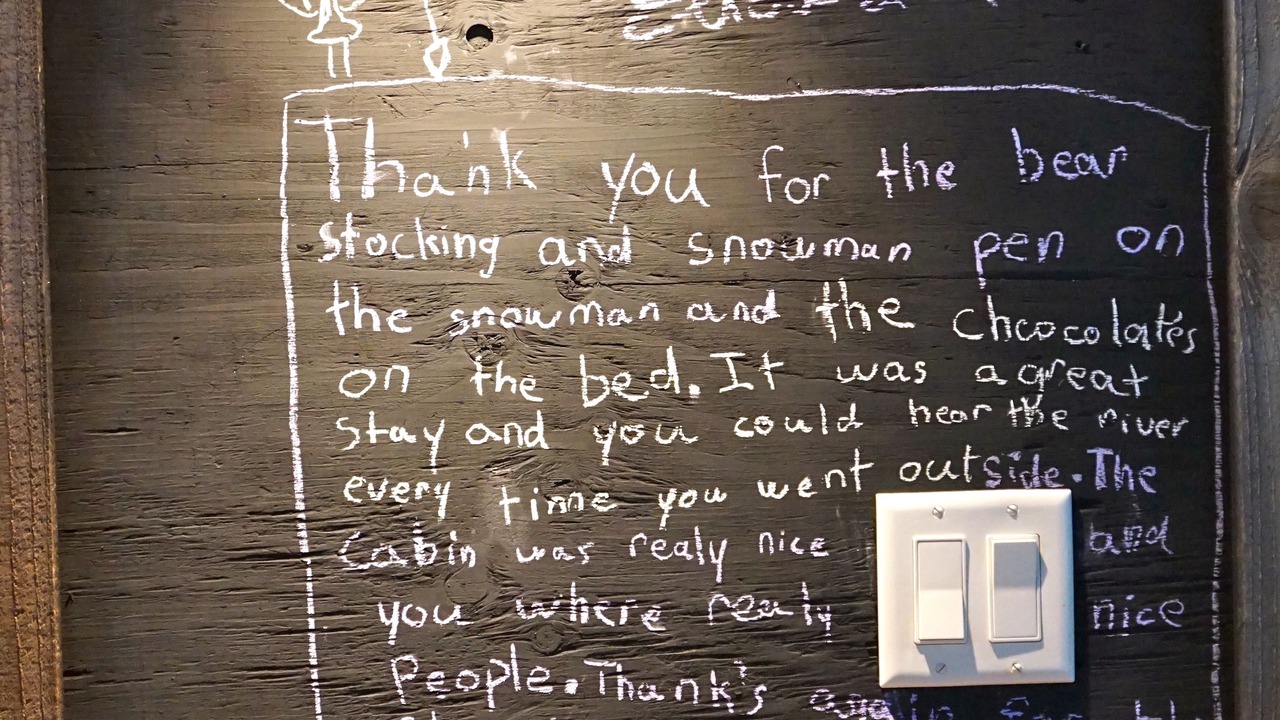 Thank you for the bear
stocking and snowman pen on
the snowman and the chcocolates
on the bed. It was a great
stay and you could hear the river
every time you went outside. The
Cabin was realy nice and
you where realy nice
People. Thank's again for